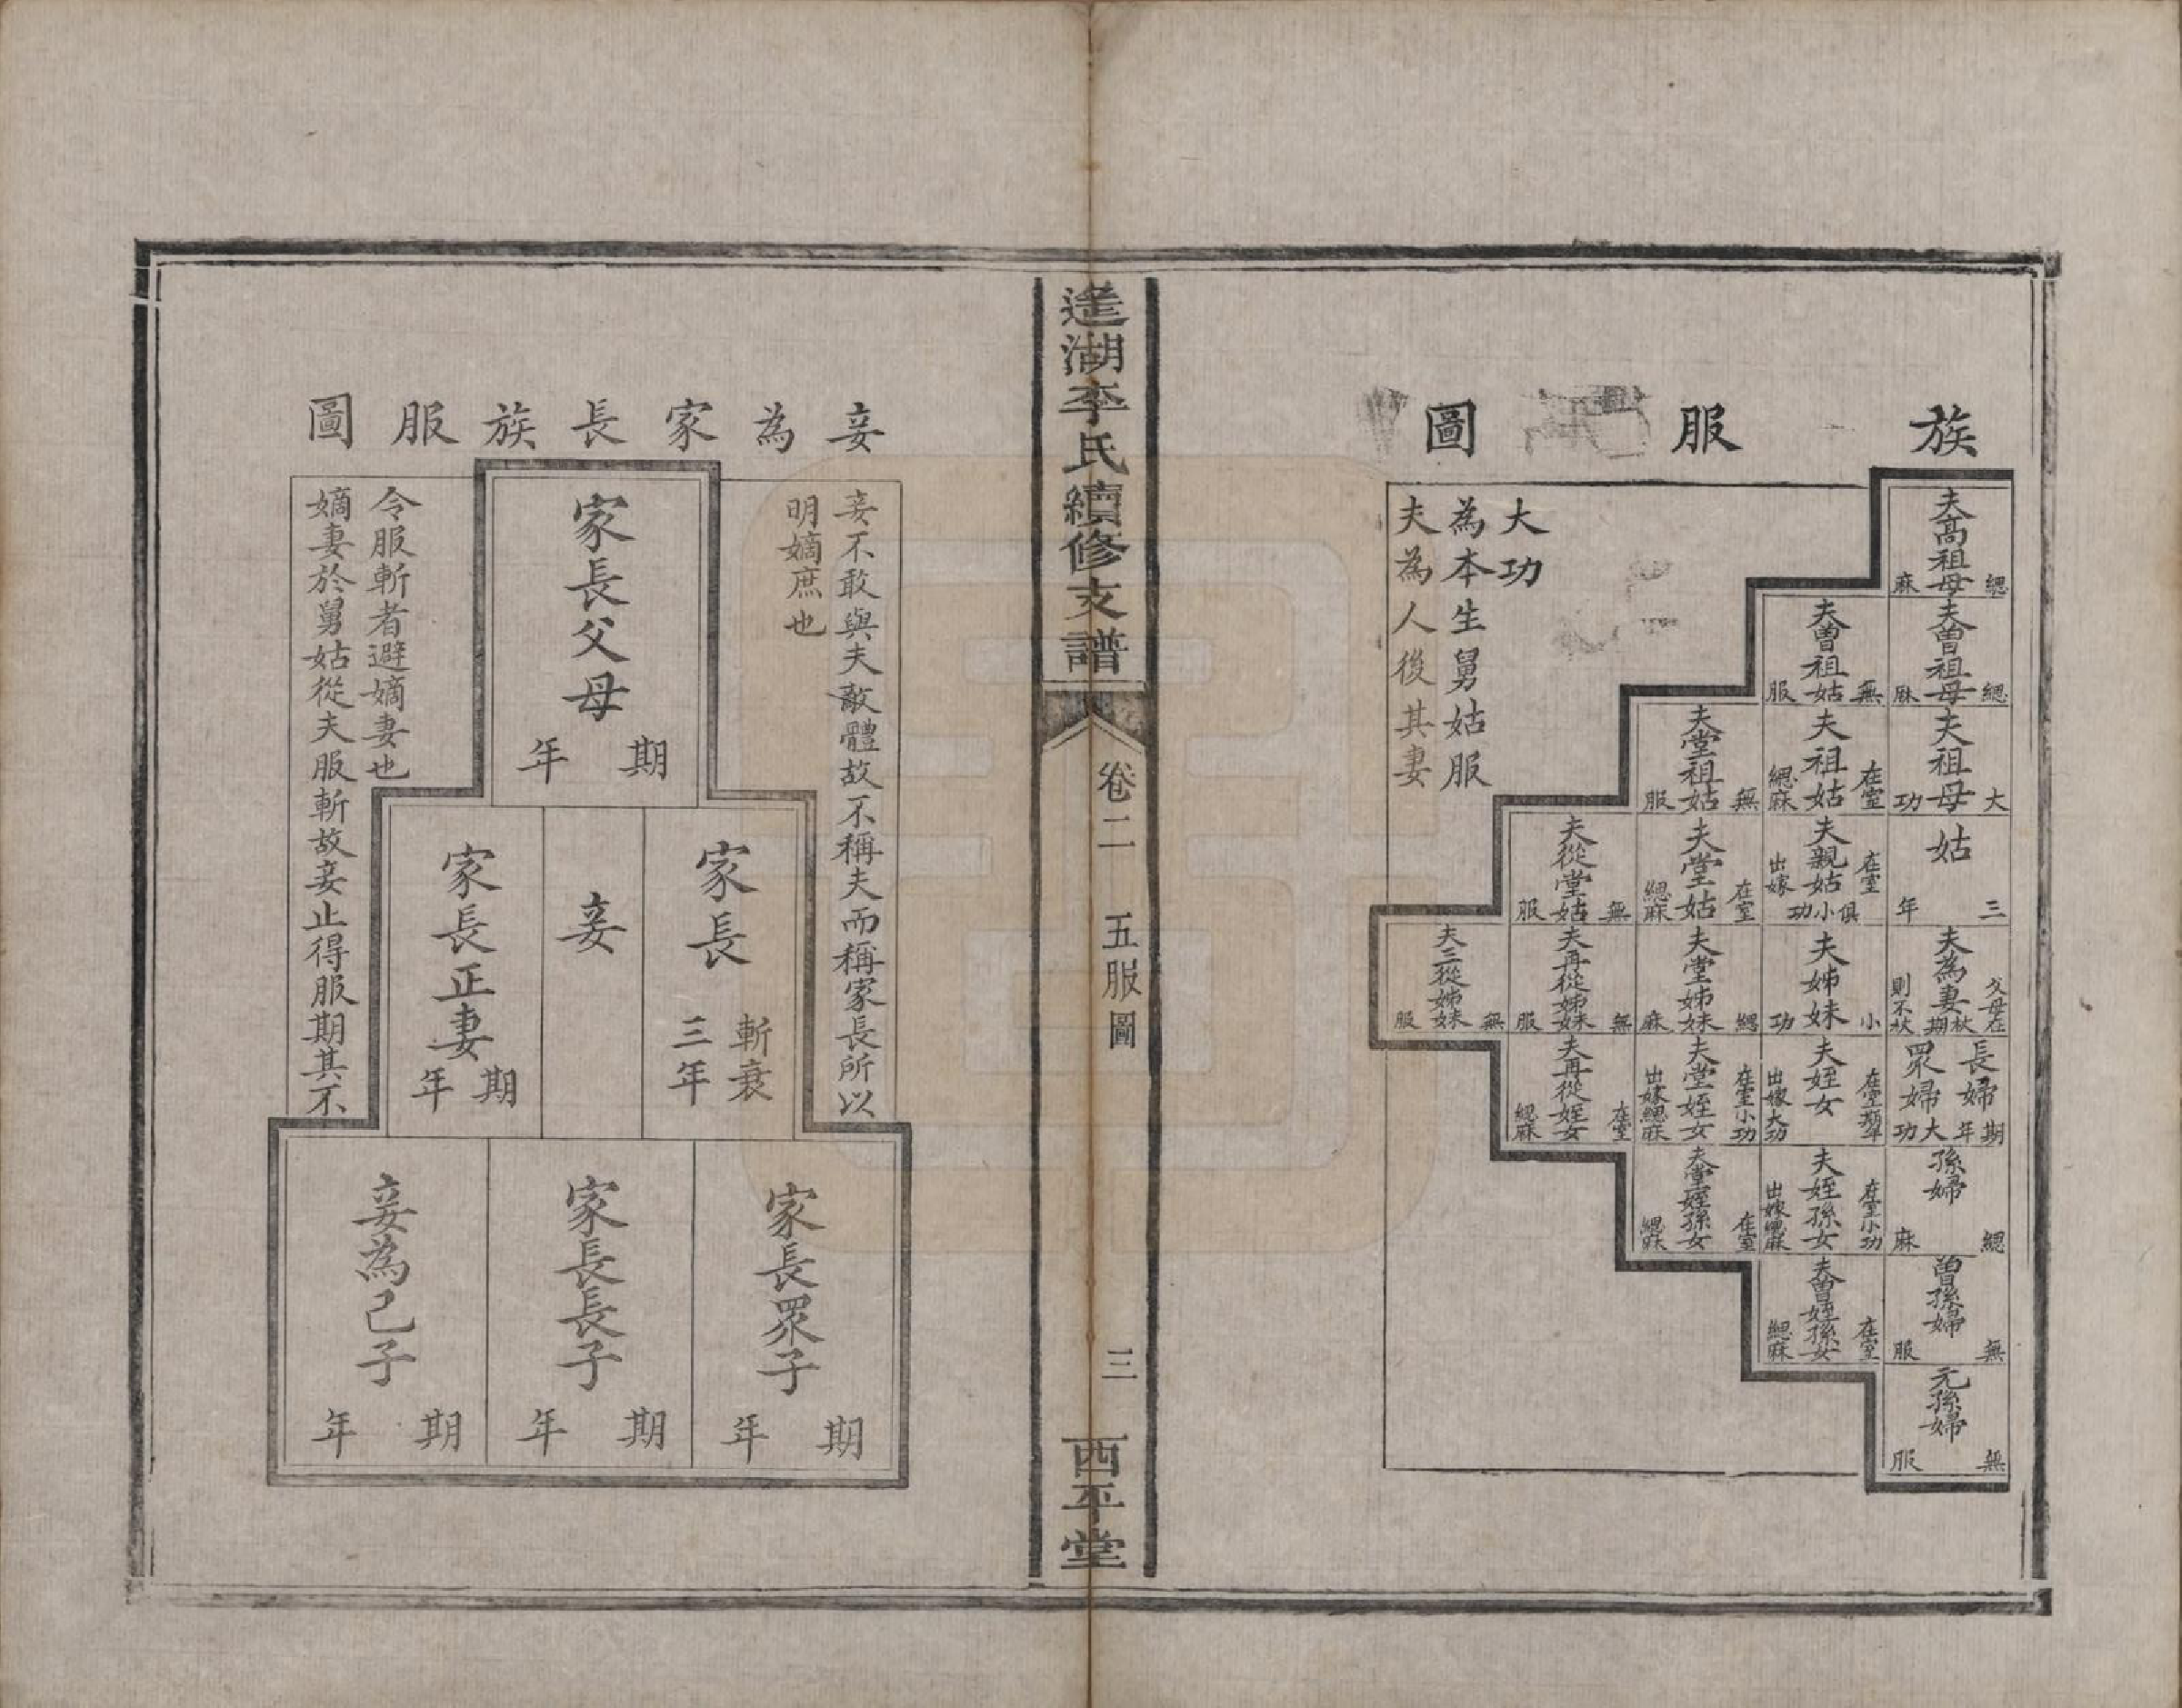 族服圖
夫高祖母 緦麻
夫曾祖母 緦麻
夫祖母 大功
姑 三年
夫為妻 父母在則不杖 杖期
長婦 期年
眾婦 大功
孫婦 緦麻
曾孫婦 無服
元孫婦 無服
夫曾祖姑 無服
夫祖姑 在室緦麻
夫親姑 在室出嫁俱小功
夫姊妹 小功
夫姪女 在室期年 出嫁大功
夫姪孫女 在室小功 出嫁緦麻
夫曾姪孫女 在室緦麻
夫堂祖姑 無服
夫堂姑 在室緦麻
夫堂姊妹 緦麻
夫堂姪女 在室小功 出嫁緦麻
夫堂姪孫女 在室緦麻
夫從堂姑 無服
夫再從姊妹 無服
夫再從姪女 在室緦麻
夫三從姊妹 無服
大功
為本生舅姑服
夫為人後其妻
遙湖李氏續修支譜
卷二 五服圖 三
西平堂
妾為家長族服圖
妾不敢與夫敵體故不稱夫而稱家長所以
明嫡庶也
家長父母 期年
家長 斬衰三年
妾
家長正妻 期年
家長眾子 期年
家長長子 期年
妾為己子 期年
令服斬者避嫡妻也
嫡妻於舅姑從夫服斬故妾止得服期其不